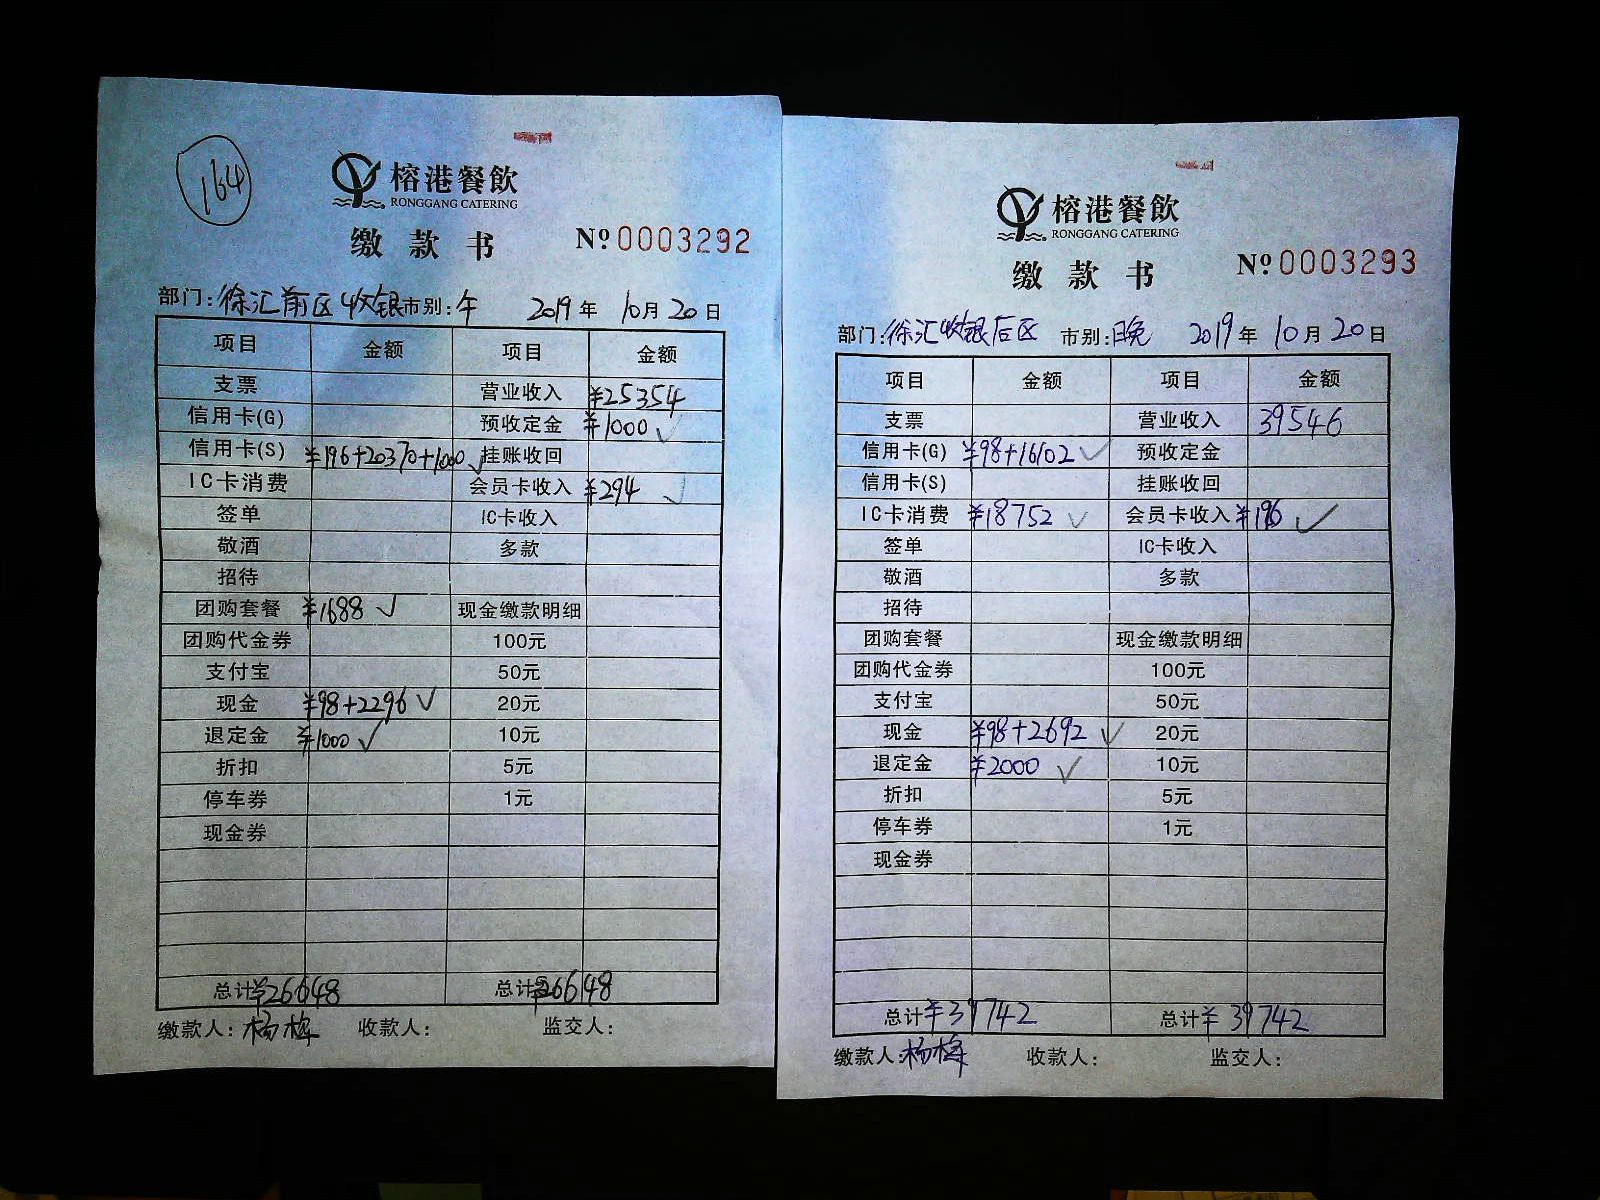 164
榕港餐飲
RONGGANG CATERING
缴款书
№0003292
部门:徐汇前区收银 市别:午 2019年 10月20日
项目 金额 项目 金额
支票 营业收入 ¥25354
信用卡(G) 预收定金 ¥1000✓
信用卡(S) ¥196+20370+1000✓ 挂账收回
IC卡消费 会员卡收入 ¥294 ✓
签单 IC卡收入
敬酒 多款
招待
团购套餐 ¥1688 ✓ 现金缴款明细
团购代金券 100元
支付宝 50元
现金 ¥98+2296✓ 20元
退定金 ¥1000✓ 10元
折扣 5元
停车券 1元
现金券
总计¥26648 总计¥26648
缴款人:杨梅 收款人: 监交人:
榕港餐飲
RONGGANG CATERING
缴款书
№0003293
部门:徐汇收银后区 市别:晚 2019年 10月20日
项目 金额 项目 金额
支票 营业收入 39546
信用卡(G) ¥98+16102✓ 预收定金
信用卡(S) 挂账收回
IC卡消费 ¥18752 ✓ 会员卡收入 ¥196 ✓
签单 IC卡收入
敬酒 多款
招待
团购套餐 现金缴款明细
团购代金券 100元
支付宝 50元
现金 ¥98+2692 ✓ 20元
退定金 ¥2000 ✓ 10元
折扣 5元
停车券 1元
现金券
总计¥39742 总计¥39742
缴款人:杨梅 收款人: 监交人: